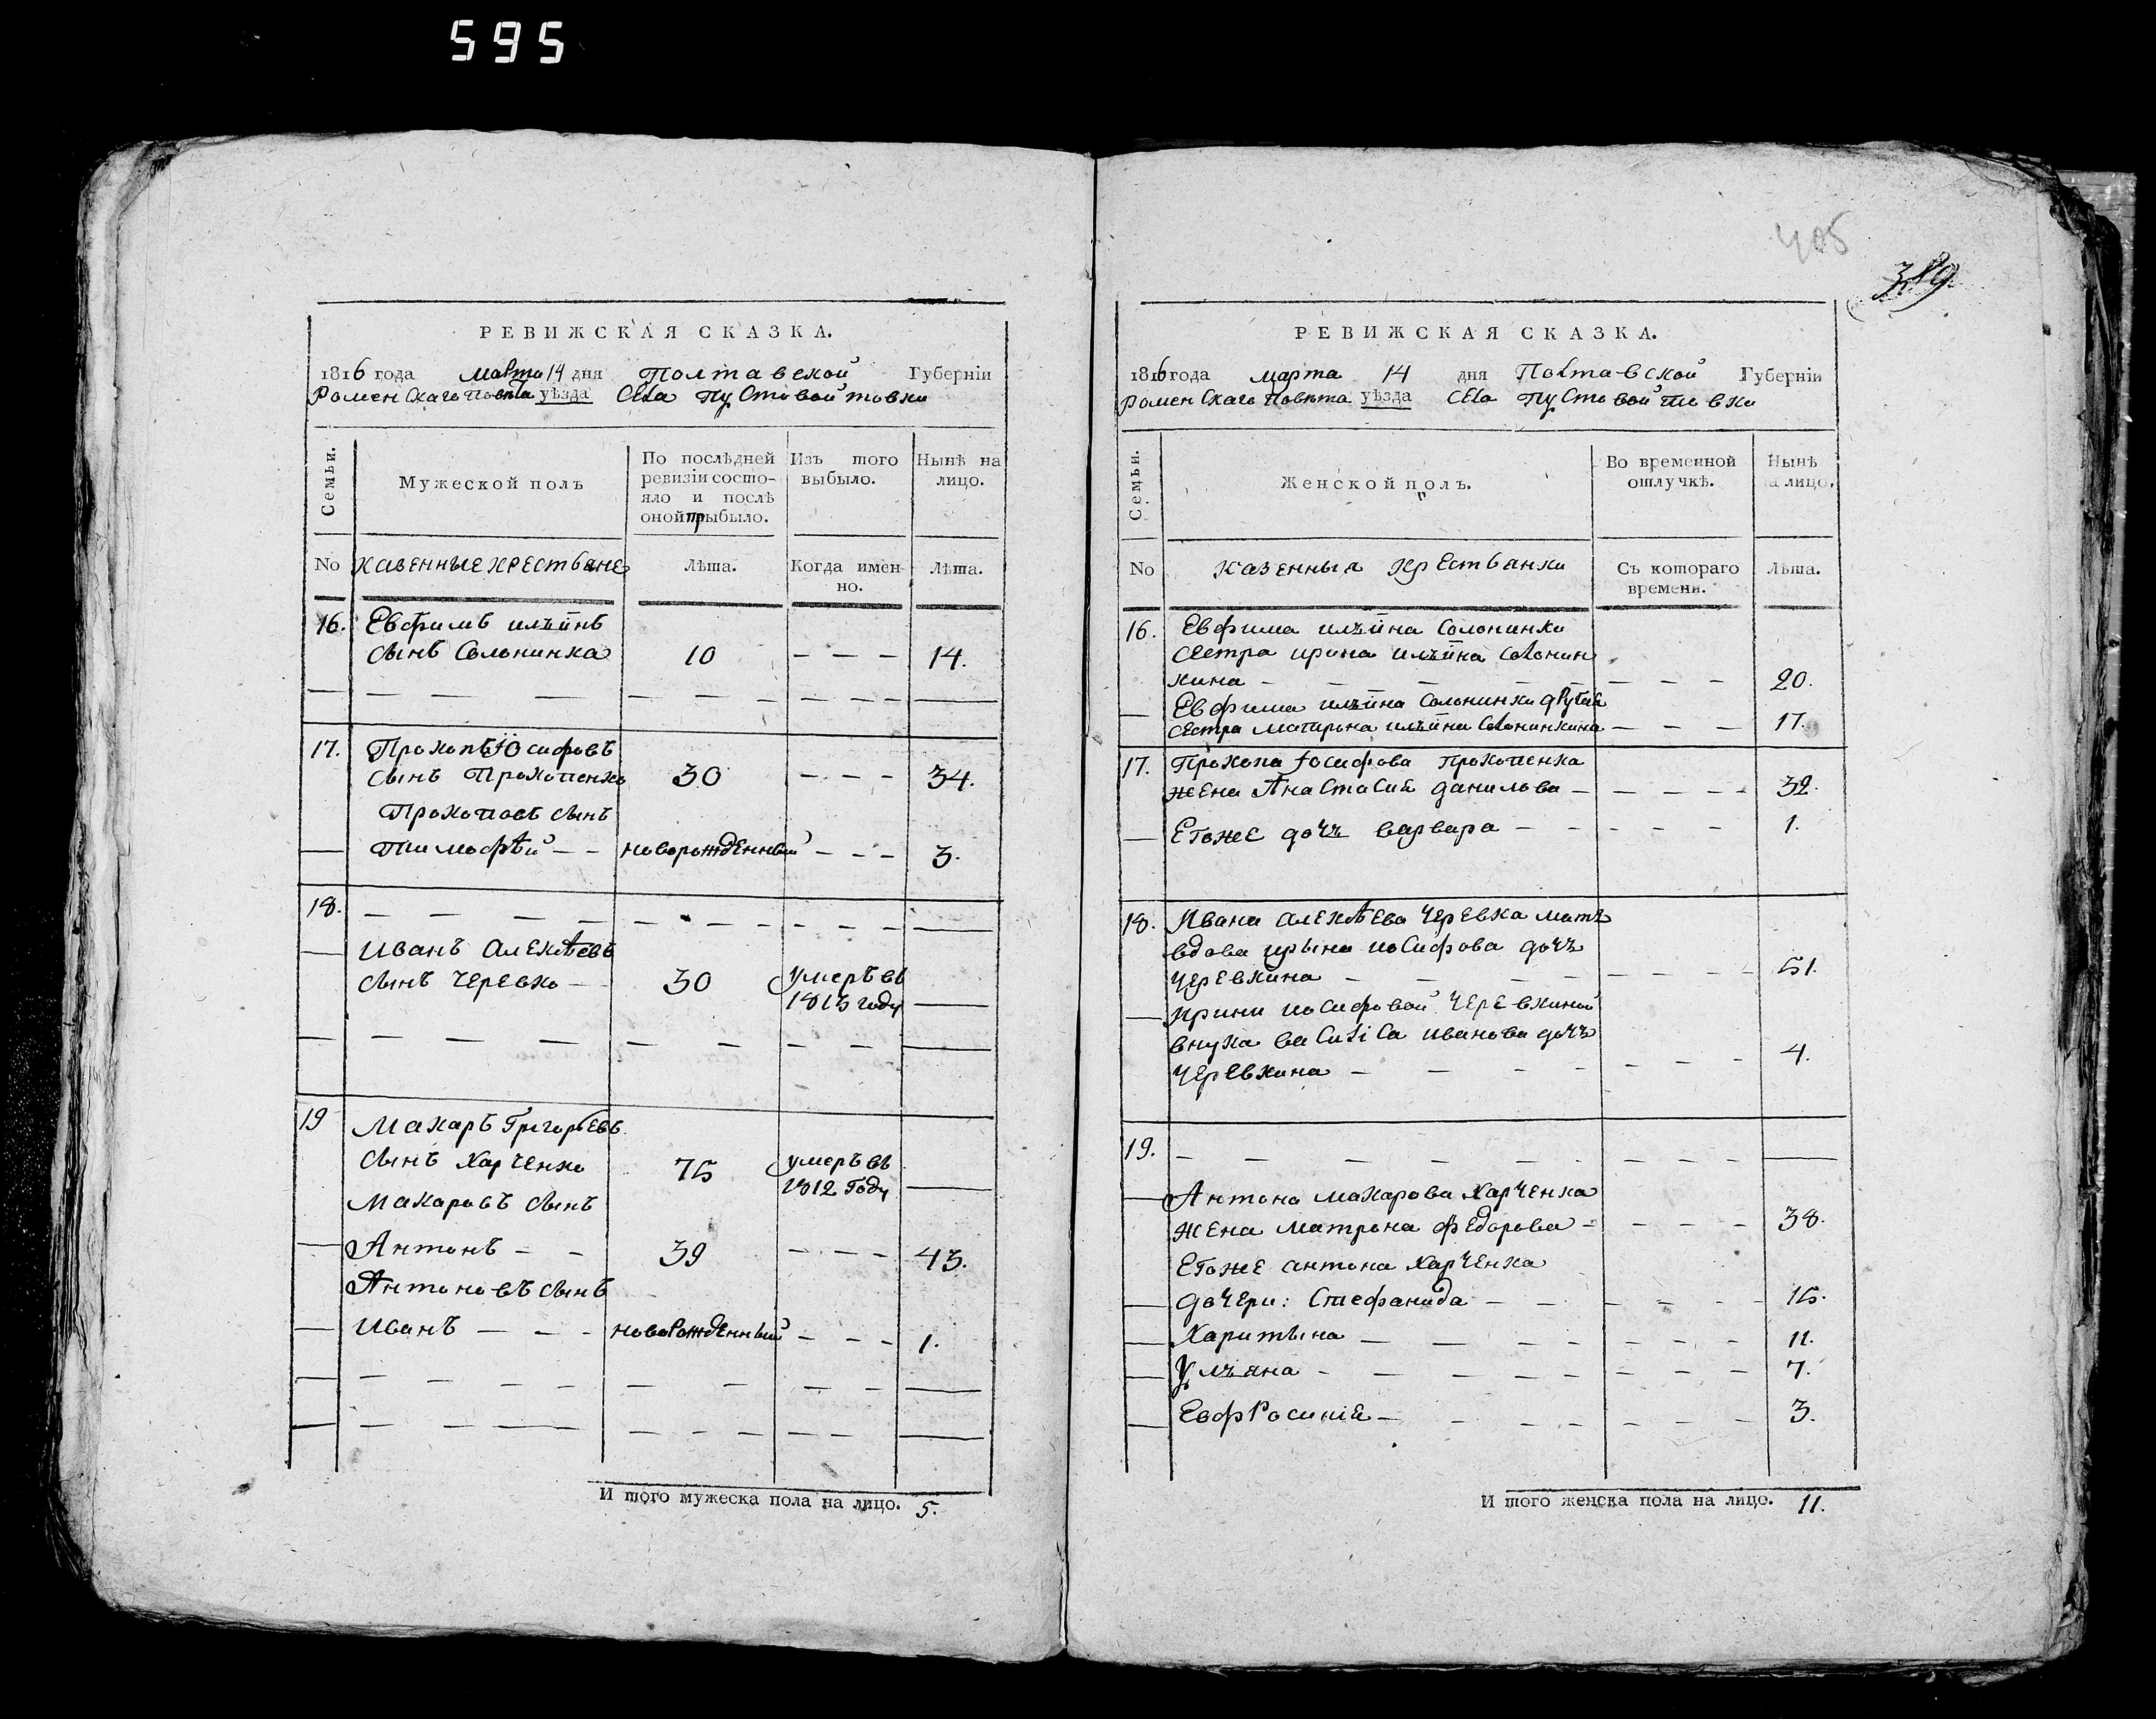 595
405
389
РЕВИЖСКАЯ СКАЗКА.
1816 года марта 14 дня Полтавской Губерніи
Роменскаго повѣта уѣзда села Пустовойтовки
Семьи.
Мужеской полъ
По послѣдней ревизіи состо-
яло и послѣ
оной прыбыло.
Изъ того
выбыло.
Нынѣ на
лицо.
No казенные крестьяне Лѣта. Когда имен-
но. Лѣта.
16. Евфимъ ильинъ
сынъ Солонинка 10 — — — 14.
17. Прокопъ Іосифовъ
сынъ Прокопенко 30 — — — 34.
Прокоповъ сынъ
Тимофѣй — — новорожденный — — — 3.
18. — — — —
Иванъ Алексѣевъ
сынъ Черевко — 30 умеръ въ
1813 году —
19 Макаръ Григорьевъ
сынъ Харченко 75 умеръ въ
1812 году —
Макаровъ сынъ
Антонъ — — 39 — — — 43.
Антоновъ сынъ
Иванъ — — — новорожденный — — — 1.
И того мужеска пола на лицо. 5.
РЕВИЖСКАЯ СКАЗКА.
1816 года марта 14 дня Полтавской Губерніи
Роменскаго повѣта уѣзда села Пустовойтовки
Семьи.
Женской полъ.
Во временной
отлучкѣ.
Нынѣ
на лицо.
No казенныя крестьянки Съ котораго
времени. Лѣта.
16. Евфима ильина Солонинки
сестра ирина ильина Солонин
кина — — — 20.
Евфима ильина Солонинки другая
сестра матрона ильина Солонинкина — — — 17.
17. Прокопа Іосифова прокопенка
жена Анастасия данилова — — — 32.
Егоже дочъ варвара — — — 1.
18. Ивана алексѣева Черевка матъ
вдова ирына иосифова дочъ
Черевкина — — — 51.
Ирини иосифовой Черевкиной
внука василиса иванова дочъ
Черевкина — — — 4.
19. — — — —
Антона макарова Харченка
жена матрона федорова — — — 38.
Егоже антона Харченка
дочери: Стефанида — — — 15.
Харитына — — — 11.
Ульяна — — — 7.
Евфросинія — — — 3.
И того женска пола на лицо. 11.